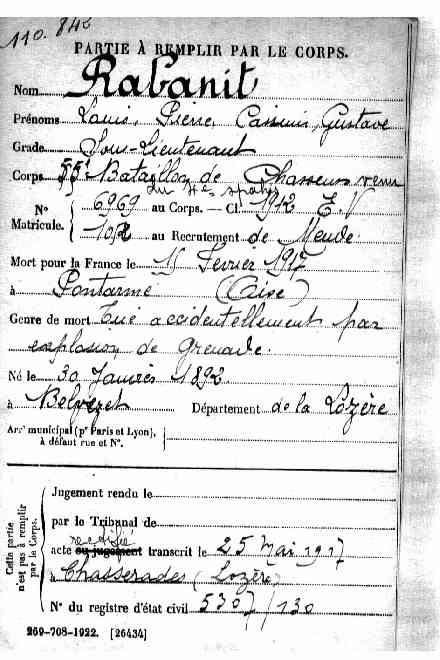 110.842
PARTIE À REMPLIR PAR LE CORPS.
Nom Rabanit
Prénoms Louis, Pierre, Casimir, Gustave
Grade Sous-Lieutenant
Corps 55e Bataillon de Chasseurs venu
du 4es spahis
N° Matricule. 6969 au Corps. — Cl. 1912 E.V
102 au Recrutement de Mende
Mort pour la France le 15 Février 1917
à Pontarmé (Oise)
Genre de mort Tué accidentellement par
explosion de Grenade.
Né le 30 Janvier 1892
à Belvezet Département de la Lozère
Arrt municipal (pr Paris et Lyon),
à défaut rue et N°.
Cette partie n'est pas à remplir par le Corps.
Jugement rendu le
par le Tribunal de
rectifié
acte ou jugement transcrit le 25 Mai 1917
à Chasseradès (Lozère)
N° du registre d'état civil 5307/130
269-708-1922. [26434]